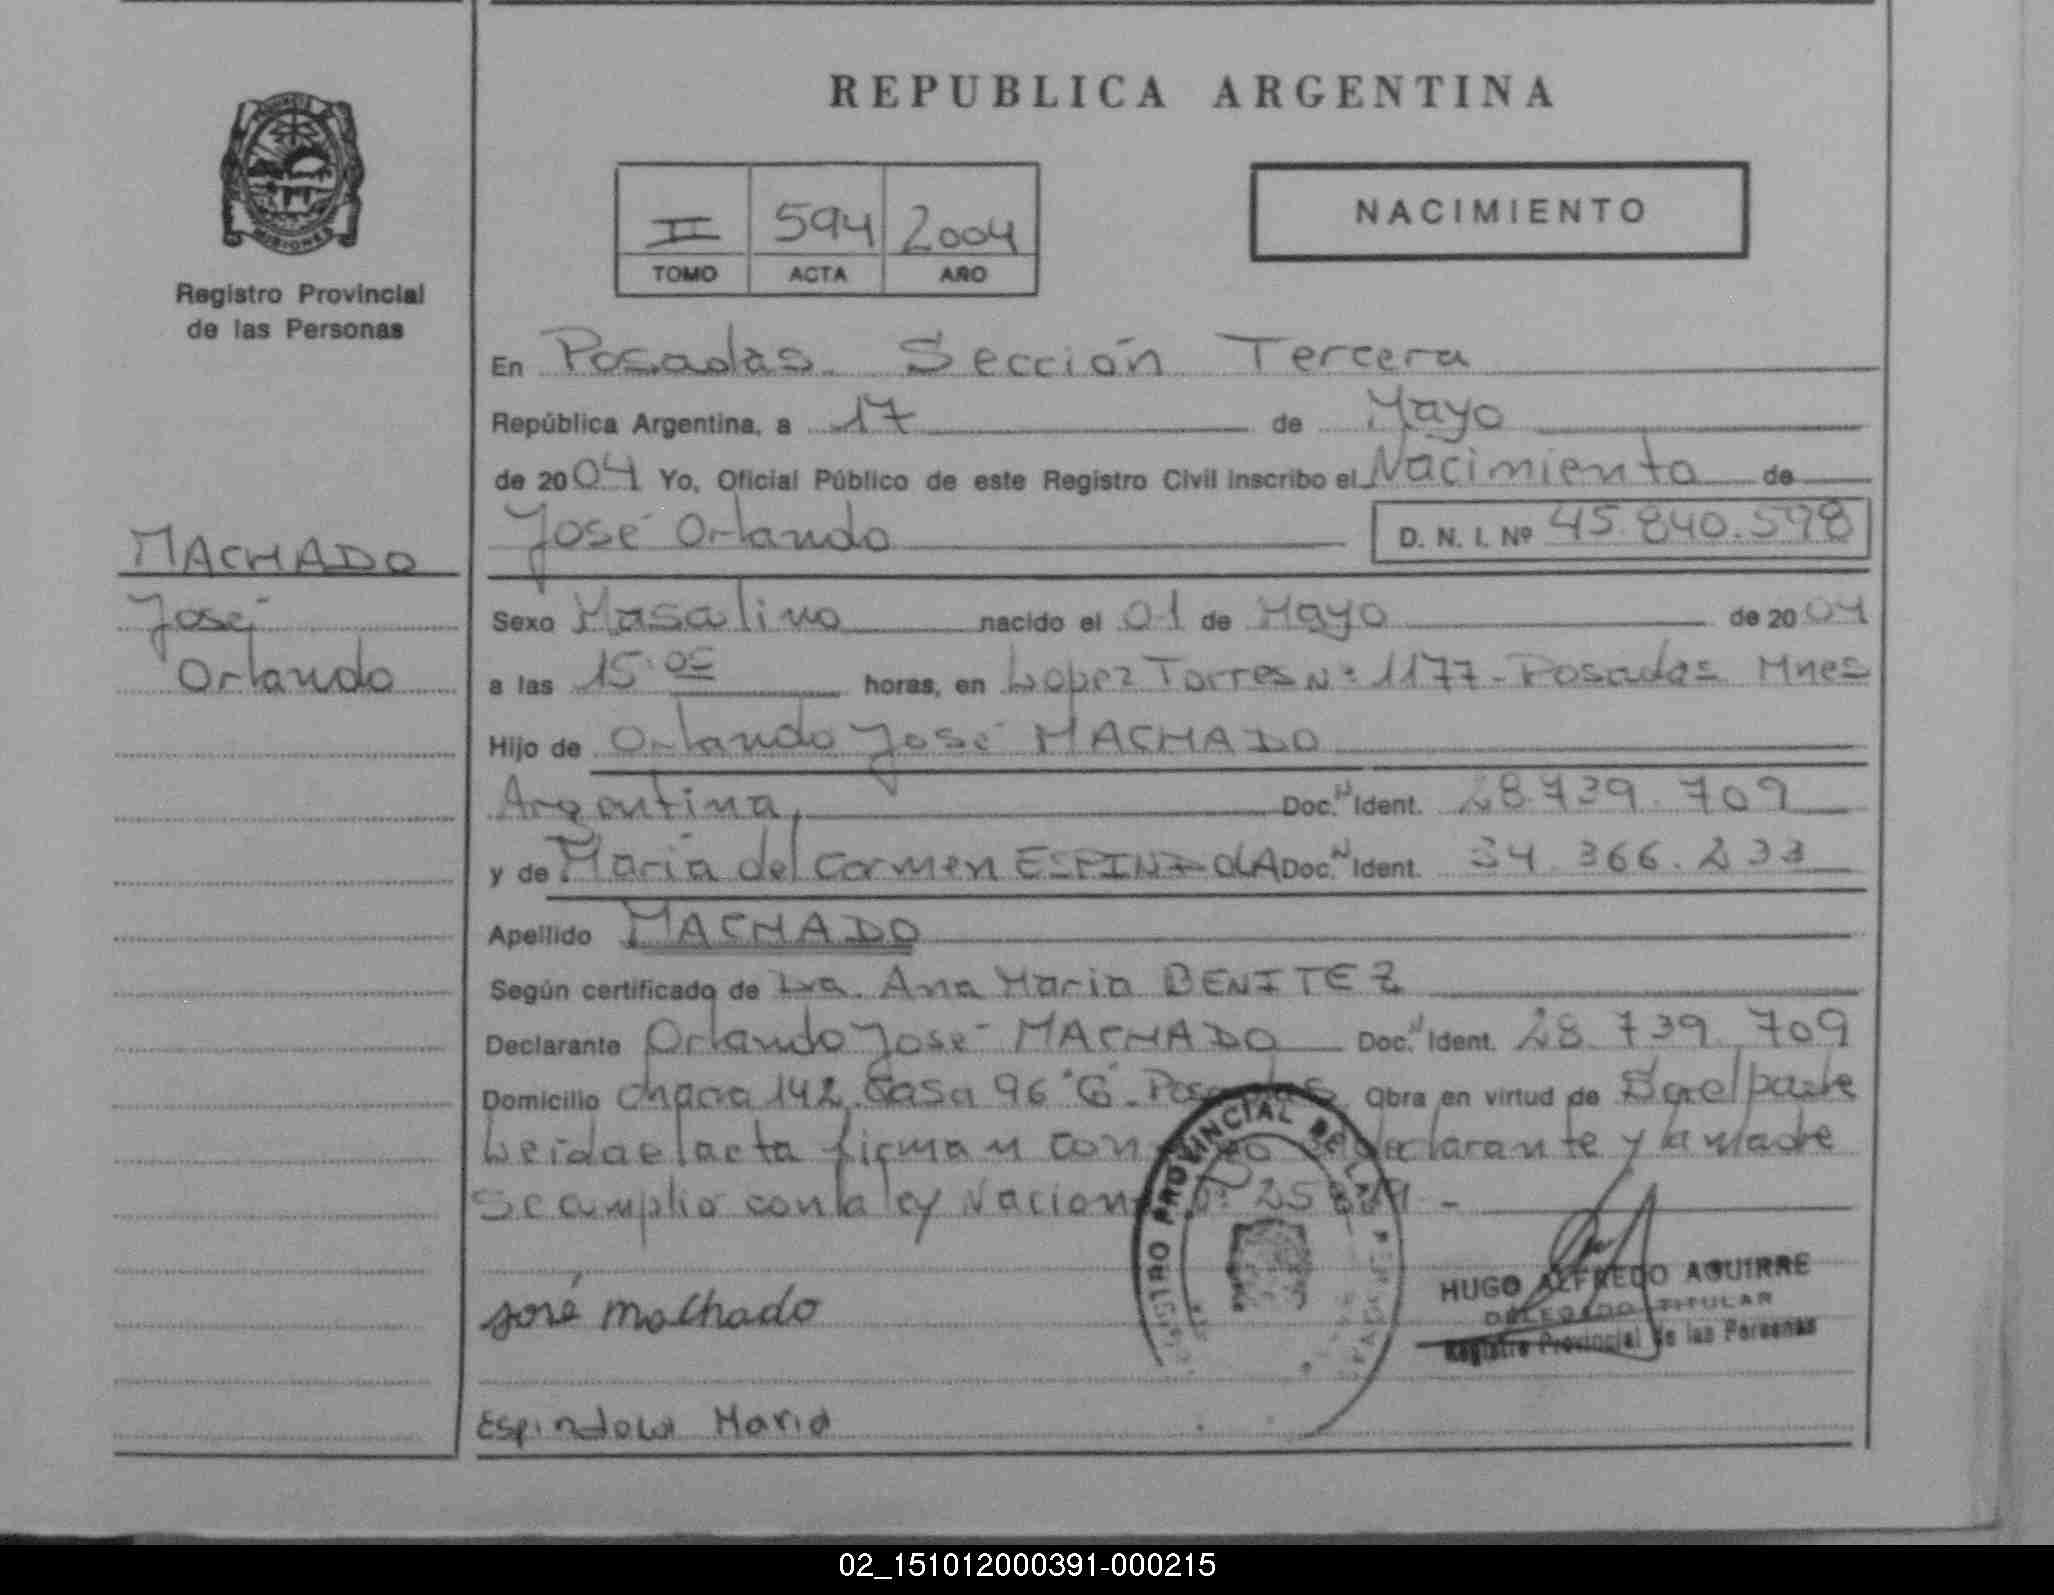 REPUBLICA ARGENTINA
MISIONES
Registro Provincial
de las Personas
II 594 2004
TOMO ACTA AÑO
NACIMIENTO
En Posadas. Sección Tercera
República Argentina, a 17 de Mayo
de 2004 Yo, Oficial Público de este Registro Civil inscribo el Nacimiento de
José Orlando D. N. I. Nº 45.840.598
MACHADO
José
Orlando
Sexo Masculino nacido el 01 de Mayo de 2004
a las 15:05 horas, en Lopez Torres Nº 1177 - Posadas Mnes
Hijo de Orlando José MACHADO
Argentina, Doc. N Ident. 28.739.709
y de Maria del Carmen ESPINDOLA Doc. N Ident. 34.366.233
Apellido MACHADO
Según certificado de Dra. Ana Maria BENITEZ
Declarante Orlando José MACHADO Doc. N Ident. 28.739.709
Domicilio chacra 142 Casa 96 "G" Posadas Obra en virtud de Ser el padre
Leida el acta firman con declarante y la madre
Se cumplio con la ley Nacional
REGISTRO PROVINCIAL DE LAS PERSONAS
José Machado
HUGO ALFREDO AGUIRRE
DELEGADO TITULAR
Registro Provincial de las Personas
Espindola Maria
02_151012000391-000215